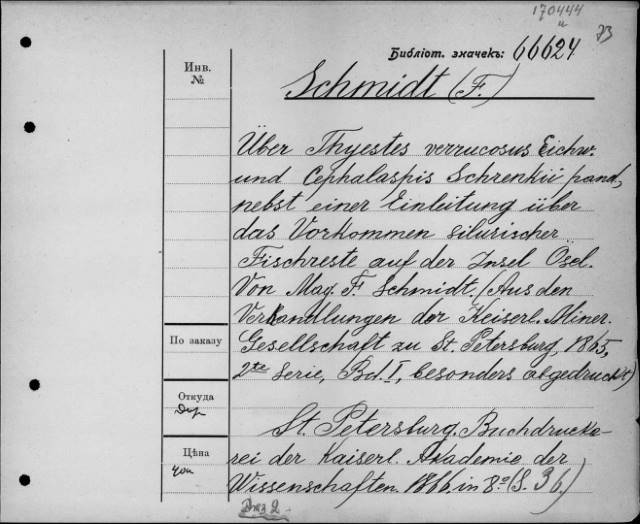 170444
73
Библіот. значекъ: 66624
Инв.
№
Schmidt (F.)
Über Thyestes verrucosus Eichw.
und Cephalaspis Schrenkii pand,
nebst einer Einleitung über
das Vorkommen silurischer
Fischreste auf der Insel Ösel.
Von Mag. F. Schmidt. (Aus den
Verhandlungen der Keiserl. Miner.
По заказу
Gesellschaft zu St. Petersburg, 1865,
2te Serie, Bd. I, besonders abgedruckt)
Откуда
St. Petersburg. Buchdrucke-
Цѣна
rei der Kaiserl. Akademie der
Wissenschaften. 1866. in 8º (S. 36.)